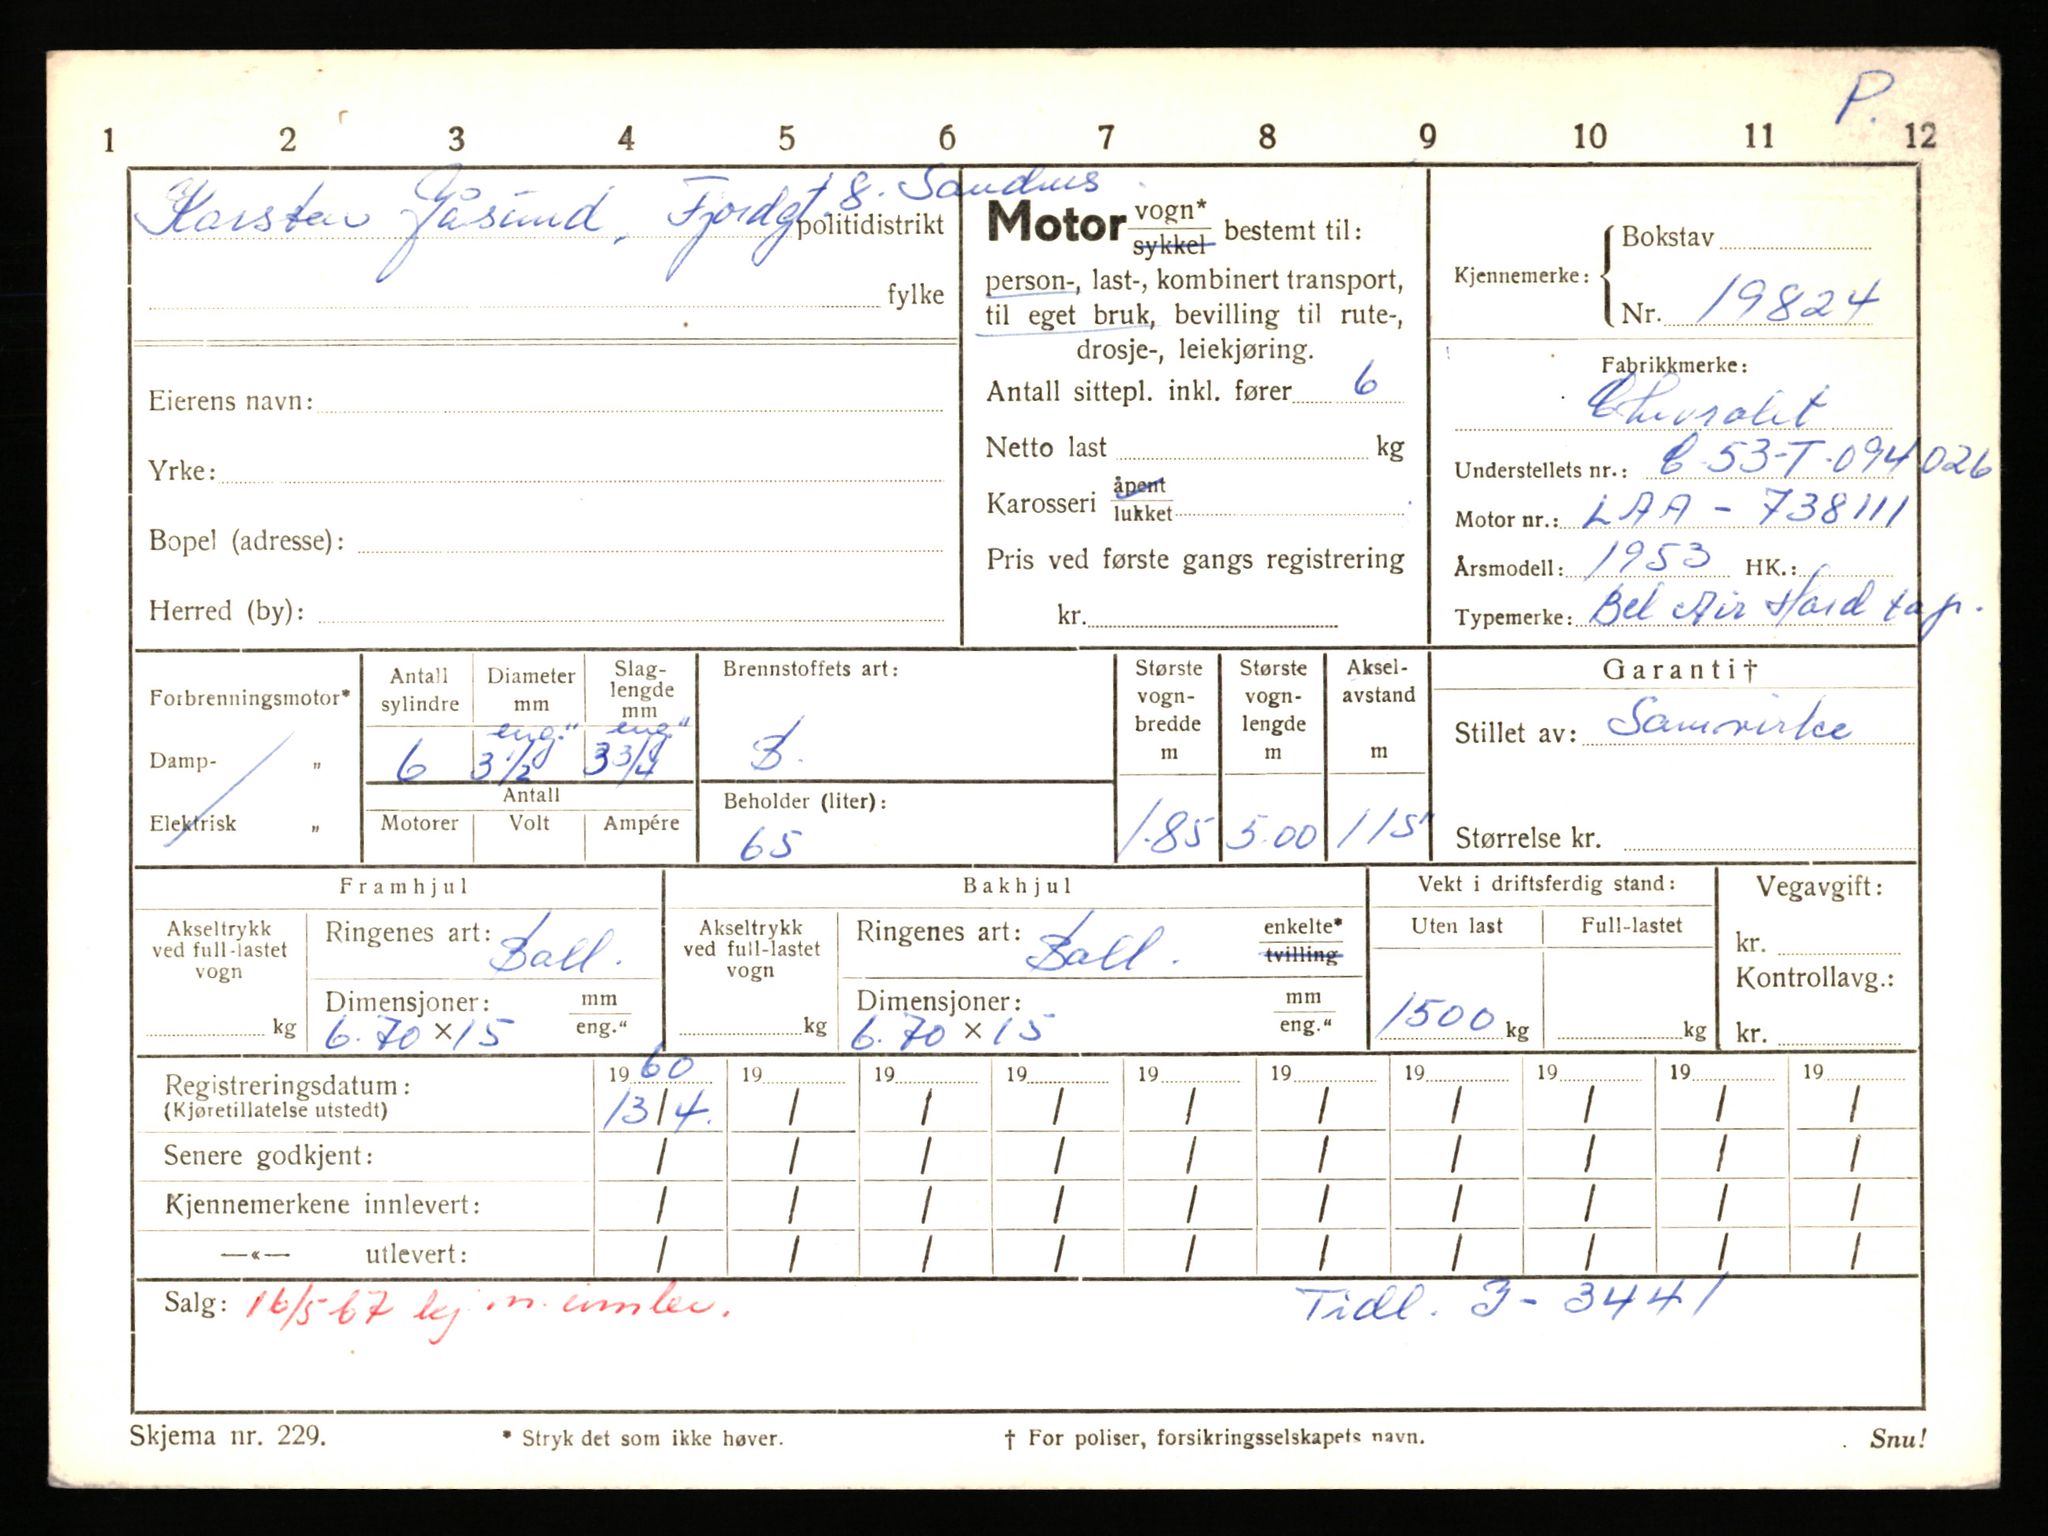 P.
1 2 3 4 5 6 7 8 9 10 11 12
Karsten Gåsund, Fjordgt. 8. Sandnes
politidistrikt
fylke
Eierens navn:
Yrke:
Bopel (adresse):
Herred (by):
Motor vogn* sykkel bestemt til:
person-, last-, kombinert transport,
til eget bruk, bevilling til rute-,
drosje-, leiekjøring.
Antall sittepl. inkl. fører 6
Netto last kg
Karosseri åpent lukket
Pris ved første gangs registrering
kr.
Kjennemerke: Bokstav
Nr. 19824
Fabrikkmerke:
Chevrolet
Understellets nr.: C-53-T-094026
Motor nr.: LAA - 738111
Årsmodell: 1953 HK.:
Typemerke: Bel Air Hard top.
Forbrenningsmotor*
Damp- „
Elektrisk „
Antall sylindre
6
Diameter mm
eng."
3 1/2
Slag-lengde mm
eng."
3 3/4
Antall
Motorer Volt Ampére
Brennstoffets art:
B.
Beholder (liter):
65
Største vogn-bredde m
1.85
Største vogn-lengde m
5.00
Aksel-avstand m
115"
Garanti†
Stillet av: Samvirke
Størrelse kr.
Framhjul
Akseltrykk ved full-lastet vogn
kg
Ringenes art: Ball.
Dimensjoner: mm eng."
6.70 x 15
Bakhjul
Akseltrykk ved full-lastet vogn
kg
Ringenes art: Ball. enkelte* tvilling
Dimensjoner: mm eng."
6.70 x 15
Vekt i driftsferdig stand:
Uten last Full-lastet
1500 kg kg
Vegavgift:
kr.
Kontrollavg.:
kr.
Registreringsdatum: 1960 19 19 19 19 19 19 19 19 19
(Kjøretillatelse utstedt) 13/4. / / / / / / / / /
Senere godkjent: / / / / / / / / / /
Kjennemerkene innlevert: / / / / / / / / / /
—«— utlevert: / / / / / / / / / /
Salg: 16/5-67 kj.m. innlev. Tidl. J - 3441
Skjema nr. 229. * Stryk det som ikke høver. † For poliser, forsikringsselskapets navn. Snu!